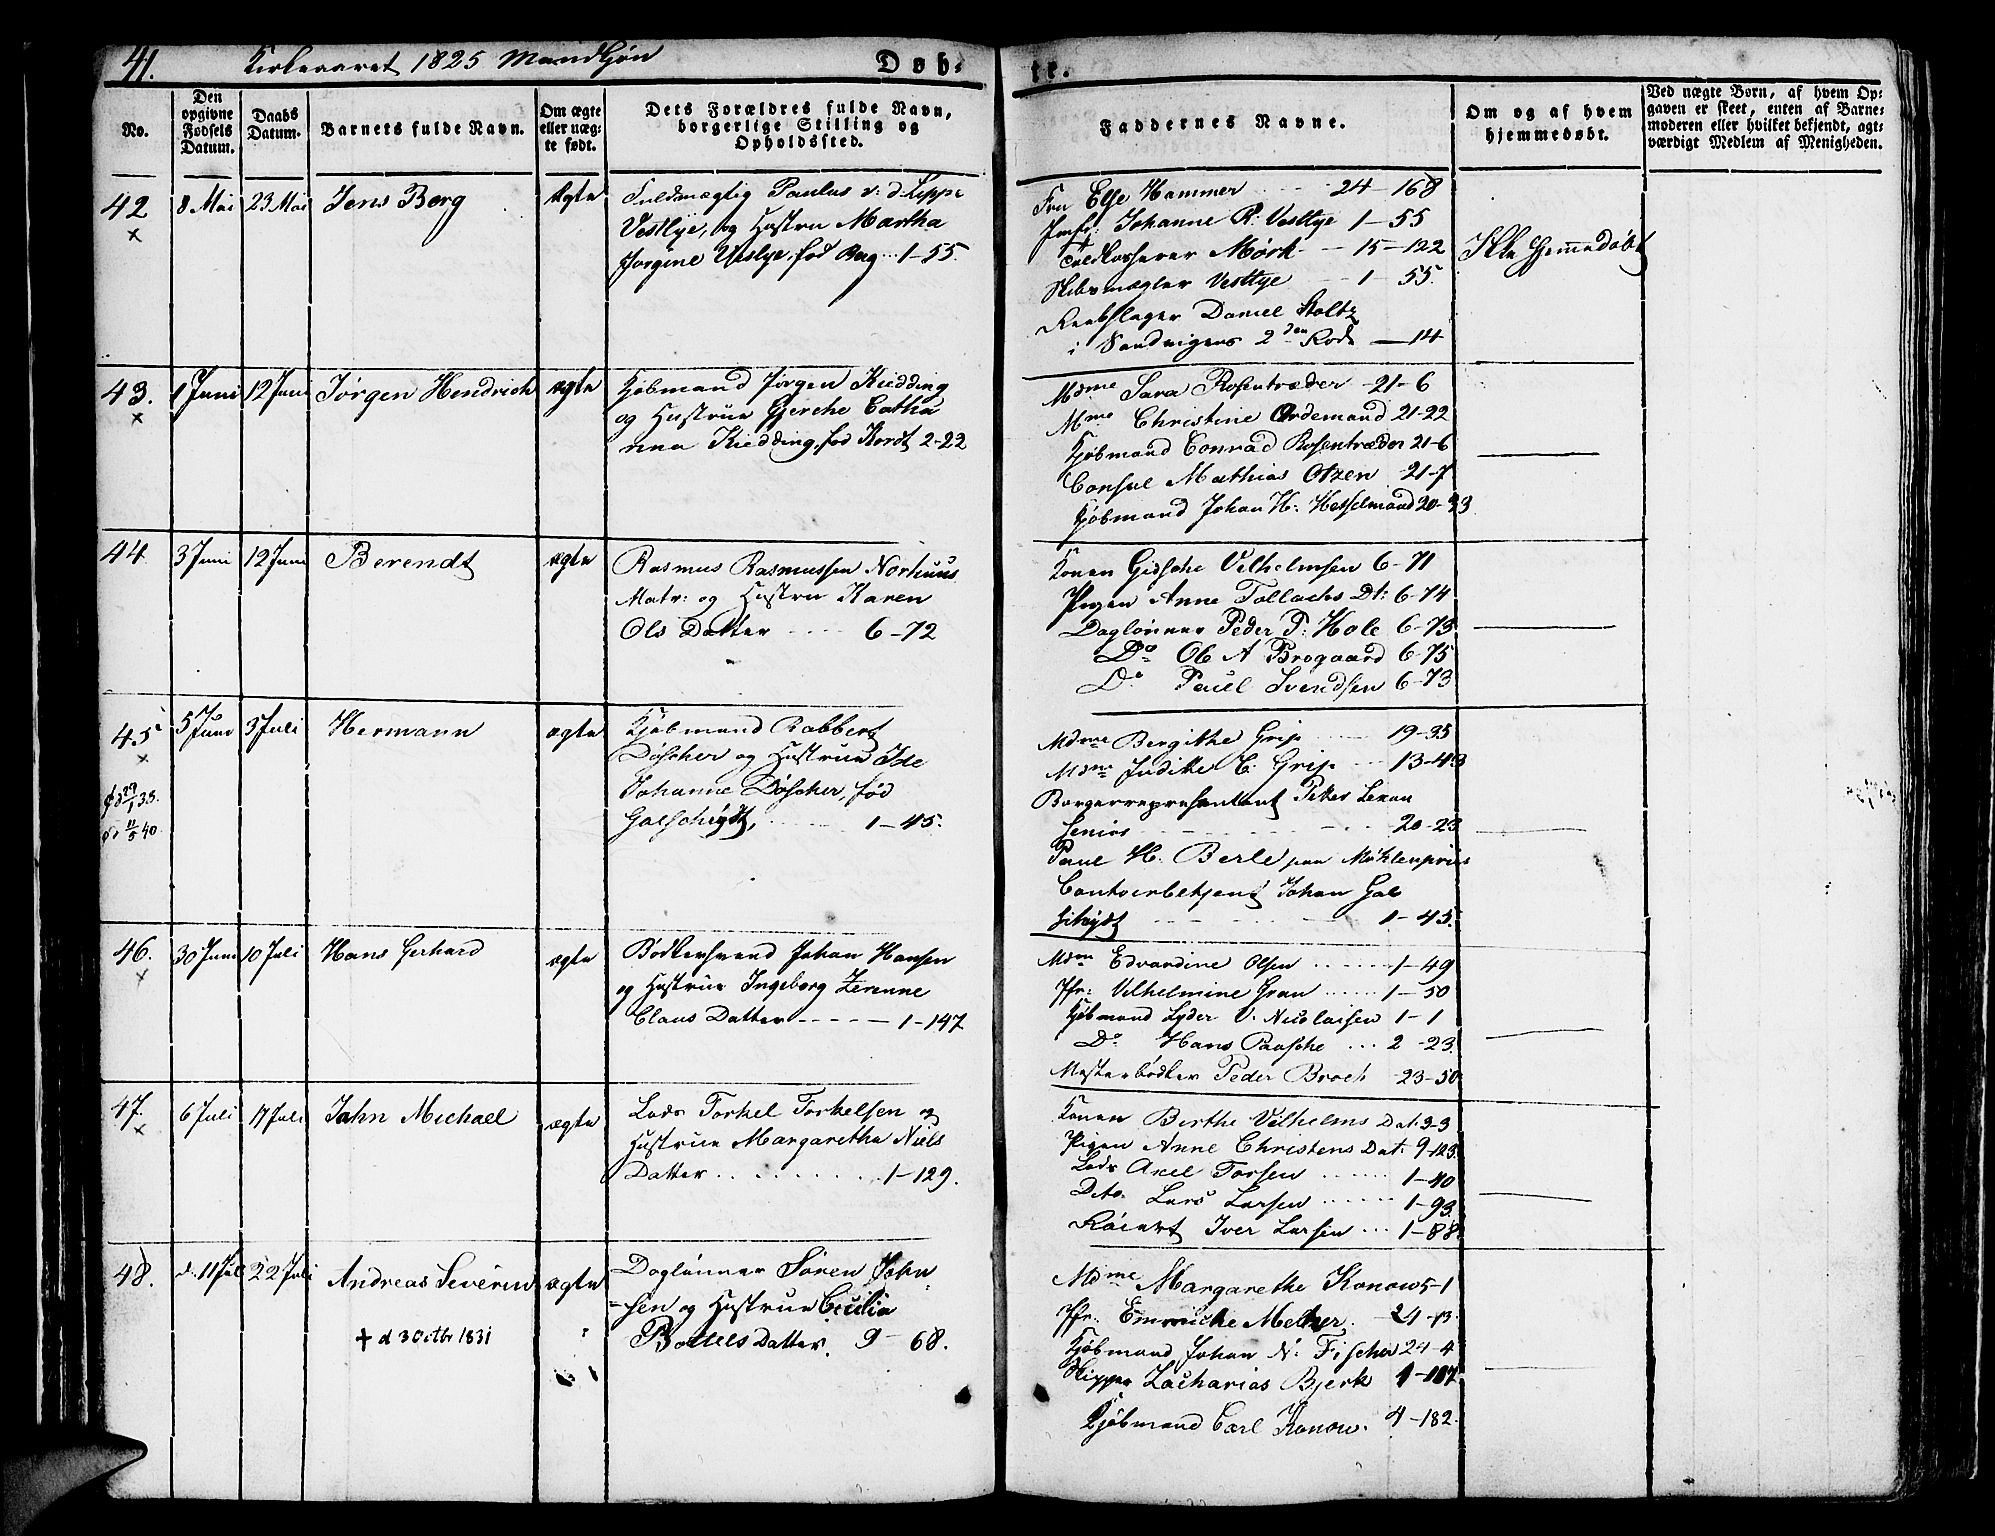 41.
Kirkeaaret 1825 Mandkjøn
Døb-
te.
No.
Den
opgivne
Fødsels
Datum.
Daabs
Datum.
Barnets fulde Navn.
Om ægte
eller uæg-
te født.
Dets Forældres fulde Navn,
borgerlige Stilling og
Opholdssted.
Faddernes Navne.
Om og af hvem
hjemmedøbt.
Ved uægte Børn, af hvem Op-
gaven er skeet, enten af Barne-
moderen eller hvilket bekjendt, agt-
værdigt Medlem af Menigheden.
42
×
8 Mai
23 Mai
Jens Berg
Ægte
Fuldmægtig Paulus v: d: Lippe
Vestlye, og Hustru Martha
Jørgine Vestlye, fød Berg ... 1-55.
Fru Else Hammer 24-168
Jomfr: Johanne R: Vestlye 1-55
Toldkasserer Mørk - 15-122
Skibsmægler Vestlye 1-55.
Reebslager Daniel Stoltz
i Sandvigens 2den Rode - 14
Ikke hjemmedøbt
43.
×
1 Juni
12 Juni
Jørgen Hendrich
ægte
Kjøbmand Jørgen Kiedding
og Hustrue Gjerche Catha
rina Kiedding, fød Kordt 2-22
Mdme Sara Rosentræder -21-6
Mme Christine Ordemand 21-22
Kjøbmand Conrad Rosentræder 21-6
Consul Mathias Otzen -21-7
Kjøbmand Johan H: Hesselmand 20-33
44
3 Juni
12 Juni
Berendt
ægte
Rasmus Rasmussen Norhuus
Matr: og Hustru Karen
Ols Datter 6-72
Konen Gidsche Vilhelmsen 6-71
Pigen Anne Tollachs Dt: 6-74
Daglønner Peder P: Hole 6-75
Do Ole A Brogaard 6-75
Do Paul Svendsen 6-73
45
×
5 Juni
3 Juli
Hermann
ægte
Kjøbmand Robbert
Döscher og Hustrue Ide
Johanne Döscher, fød
Galschiødt, 1-45.
Mdme Bergithe Grip 19-35
Mdme Judithe C: Grip 13-43
Borgerrepresentant Peter Lexau
Senior 20-23
Paul H. Berle paa Møhlenpriis
Contoirbetjent Johan Gal
schiødt 1-45.
46.
×
30 Juni
10 Juli
Hans Gerhard
ægte
Bødkersvend Johan Hansen
og Hustrue Ingeborg Zerenne
Claus Datter 1-147
Mdme Edvardine Olsen 1-49
Jfr: Vilhelmine Gran 1-50
Kjøbmand Lyder V. Nicolaisen 1-1
Do Hans Paasche ... 2-23.
Mesterbødker Peder Broch 23-50.
47.
×
6 Juli
17 Juli
John Michael
ægte
Lods Torkel Torkelsen og
Hustrue Margarethe Niels
Datter 1-129.
Konen Berthe Vilhelms Dat: 3-3
Pigen Anne Christens Dat: 9-123.
Lods Axel Torsen 1-40
Dito. Lars Larsen 1-93.
Røiert Iver Larsen 1-88.
48.
d. 11 Juli
22 Juli
Andreas Severin
✝ d 3 Octbr 1831
ægte
Daglønner Søren John-
=sen og Hustrue Cecilia
Bottels Datter. 9-68.
Mdme Margarethe Konow 5-1
Jfr: Emmiche Meltzer.
Kjøbmand Johan N: Fischer 24-4
Skipper Zacharias Bjerk
Kjøbmand Carl Konow. 4-182.